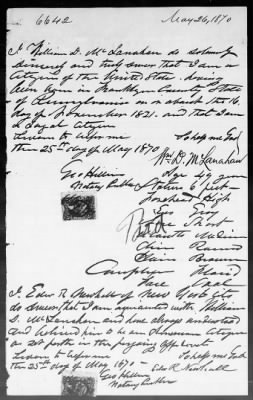 6642
May 26, 1870
I William D. McLanahan do solemnly
sincerely and truly swear that I am a
Citizen of the United States, having
been born in Franklin County State
of Pennsylvania on or about the 16
day of November 1821. and that I am
a Loyal Citizen
Sworn to before me So help me God
this 25th day of May 1870
Wm D. McLanahan
Geo Hillen Age 49 years
Notary Public Stature 6 feet
Forehead High
Eyes Grey
Nose Short
Mouth Medium
Chin Round
Hair Brown
Complexion
Face Oval
I. Edw R. Newhall of New York City
do swear, that I am acquainted with William
D. McLanahan and have always understood
and believed him to be an American Citizen
as set forth in the foregoing affidavit
Sworn to before me So help me God
this 25th day of May 1870 Edw R. Newhall
Geo Hillen
Notary Public